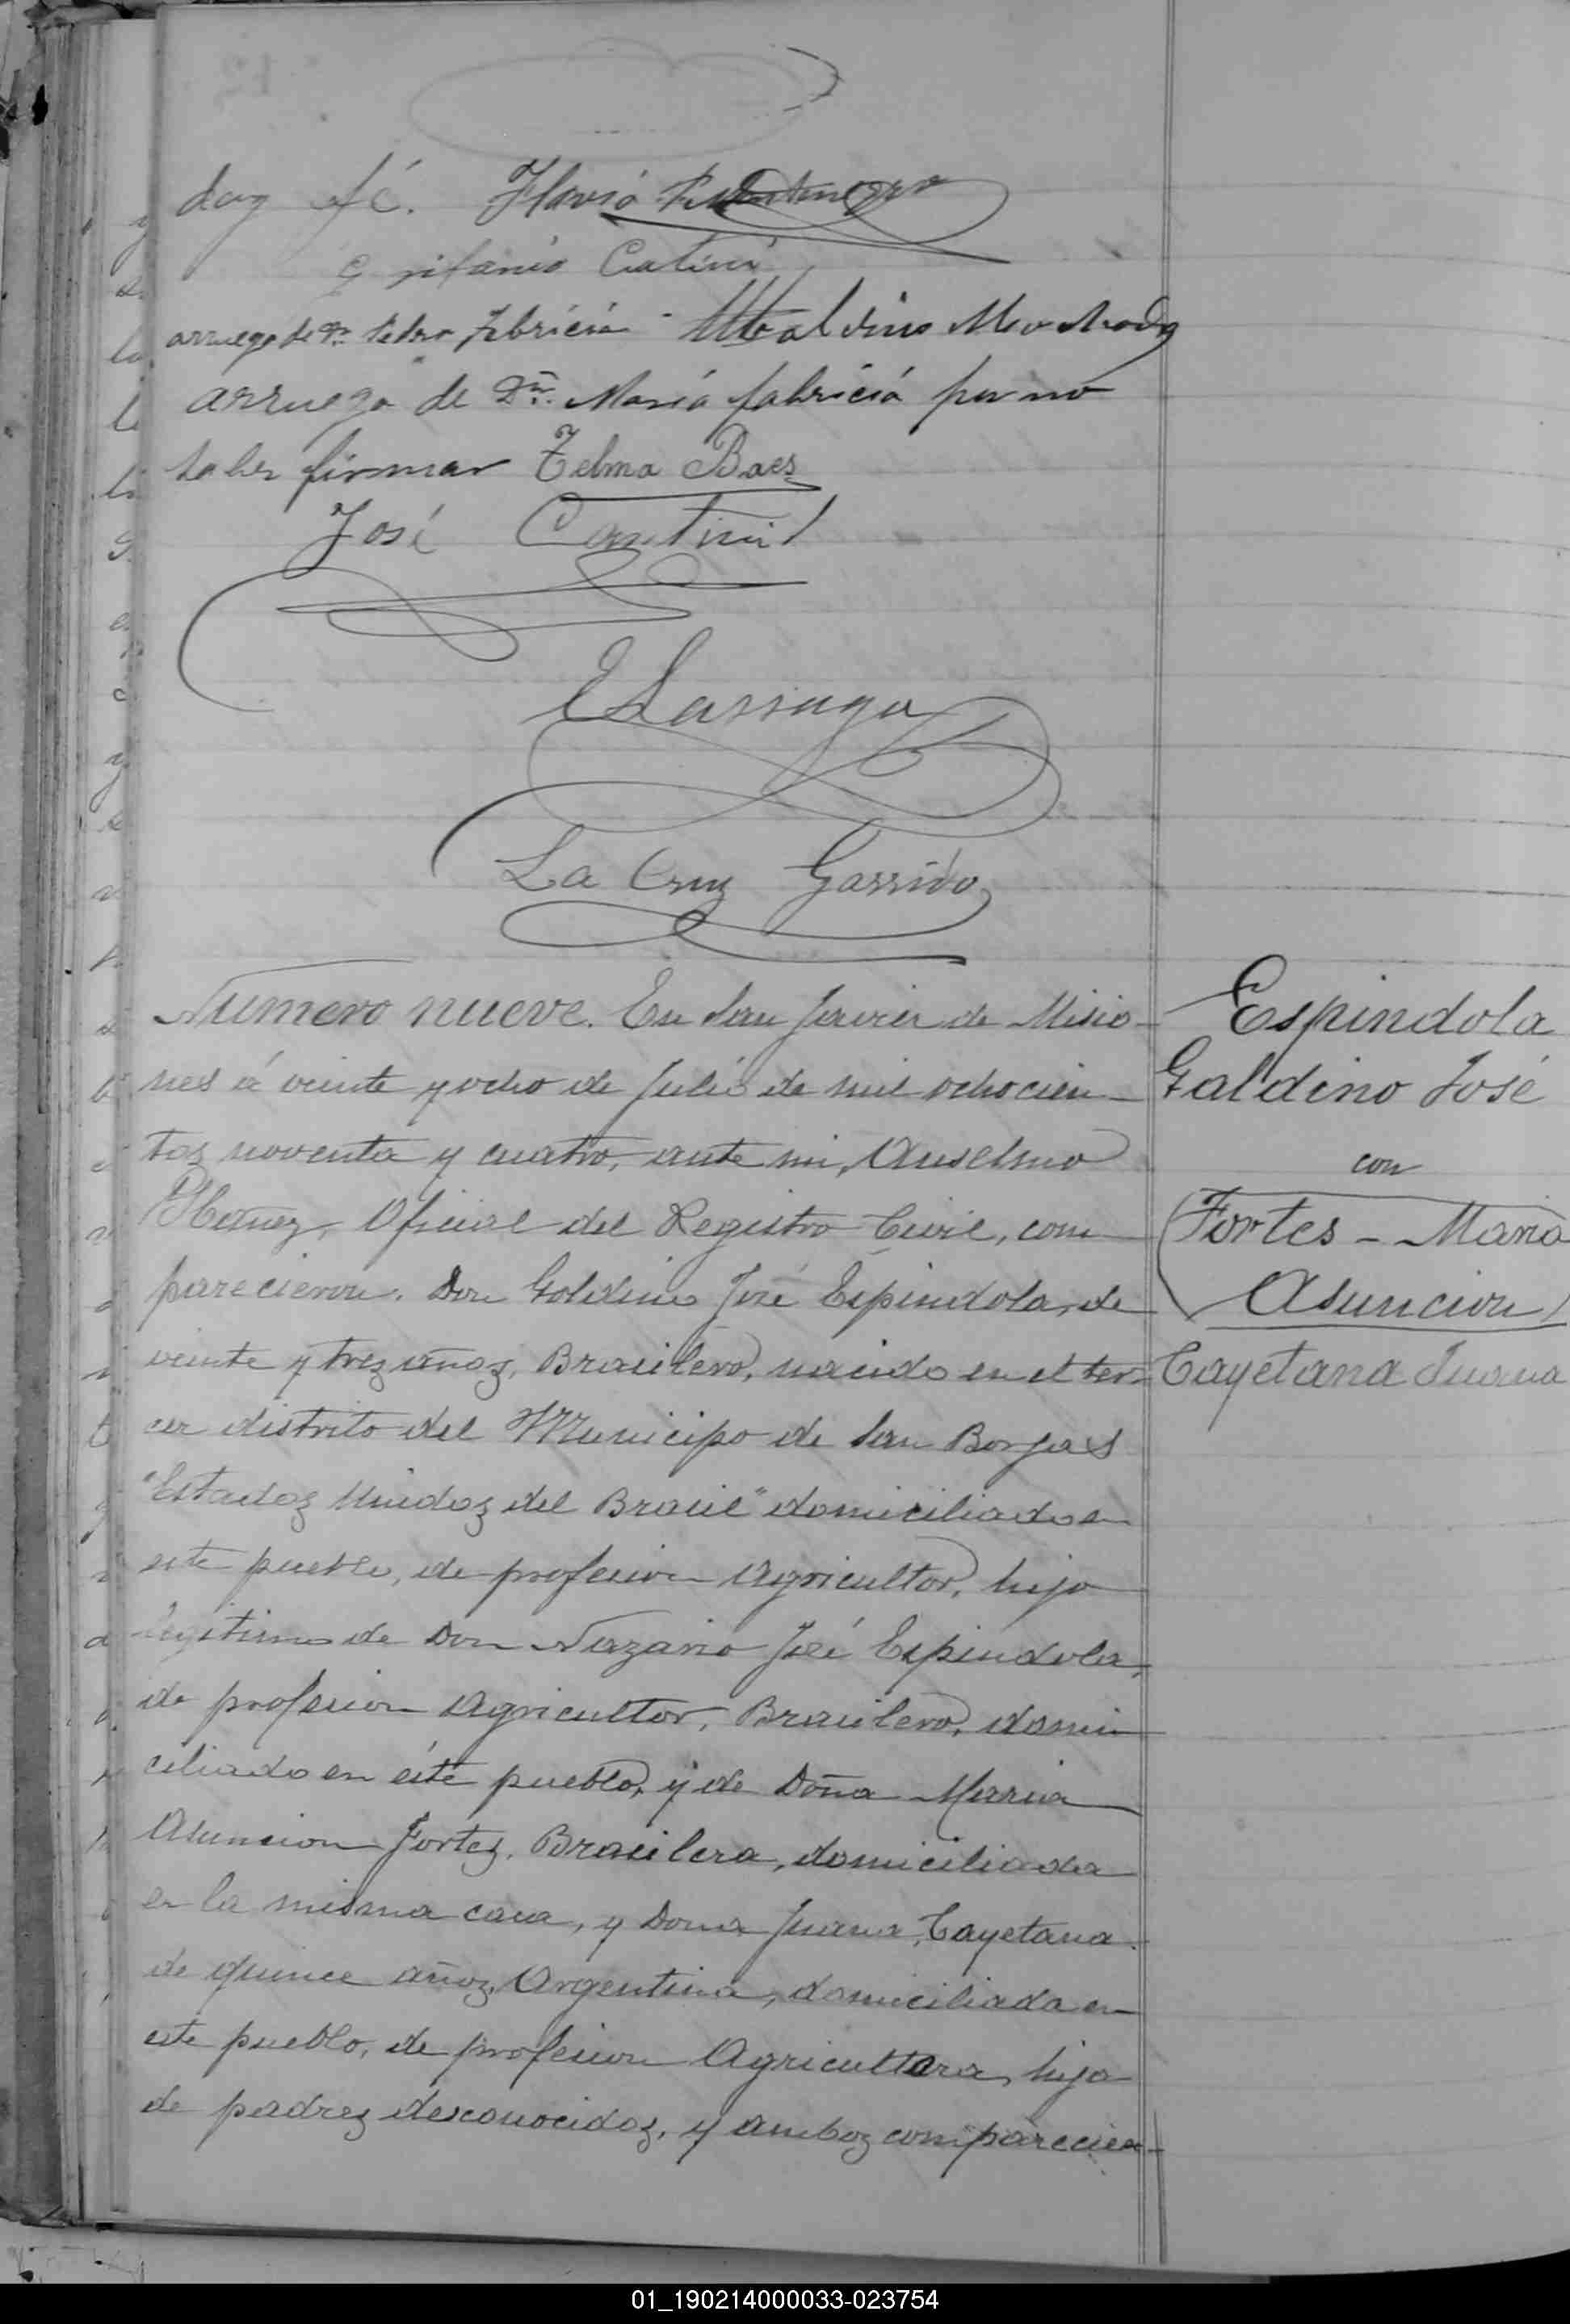 doy fé. Flavio
Epifanio Cantini
arruego de Dn Pedro Fabricia Ubaldino Machado
arruego de Dña. María fabriciá por no
saber firmar Telma Baes
José Cantini
E Larraga
La Cruz Garrido
Numero nueve. En San Javier de Misio-
nes á veinte y ocho de Julio de mil ochocien-
tos noventa y cuatro, ante mi, Anselmo
Ibañez, Oficial del Registro Civil, com
parecieron. Don Galdino José Espindola, de
veinte y trez añoz, Brasilero, nacido en el ter-
cer distrito del Municipo de San Borjas
"Estadoz Unidoz del Brasil" domiciliado en
este pueblo, de profesion Agricultor, hijo
legitimo de Don Nazario José Espindola,
de profesion Agricultor, Brasilero, domi
ciliado en éste pueblo, y de Doña Maria
Asuncion Fortez, Brasilera, domiciliada
en la misma casa, y Dona Juana Cayetana
de quince añoz, Argentina, domiciliada en
este pueblo, de profesion Agricultora, hija
de padrez desconocidoz, y amboz comparecien-
Espindola
Galdino José
con
Fortes - Maria
Asuncion
Cayetana Juana
01_190214000033-023754